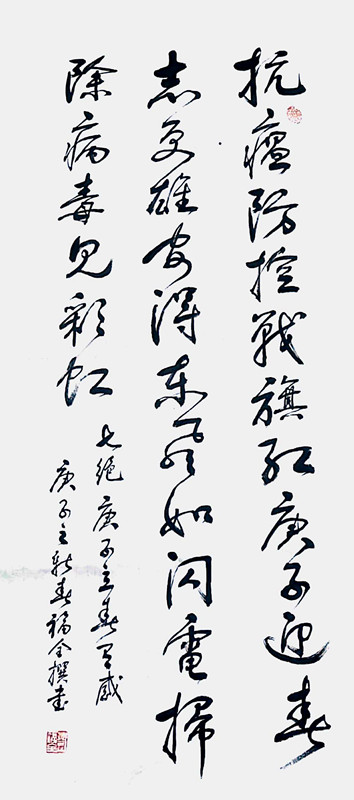 抗瘟防控戰旗红庚子迎春
志更雄安得東風如闪電掃
除病毒見彩虹
七絕庚子立春有感
庚子立新春福全撰書